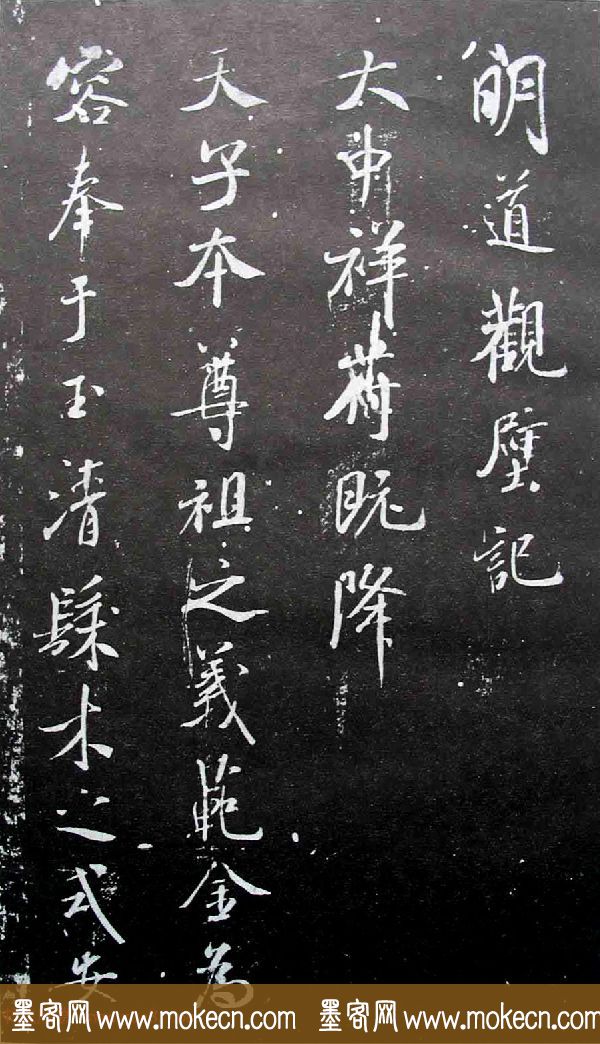 明道觀壁記
太中祥符既降
天子本尊祖之義範金為
容奉于玉清髹木之式安
墨客网 www.mokecn.com 墨客网 www.mokecn.com